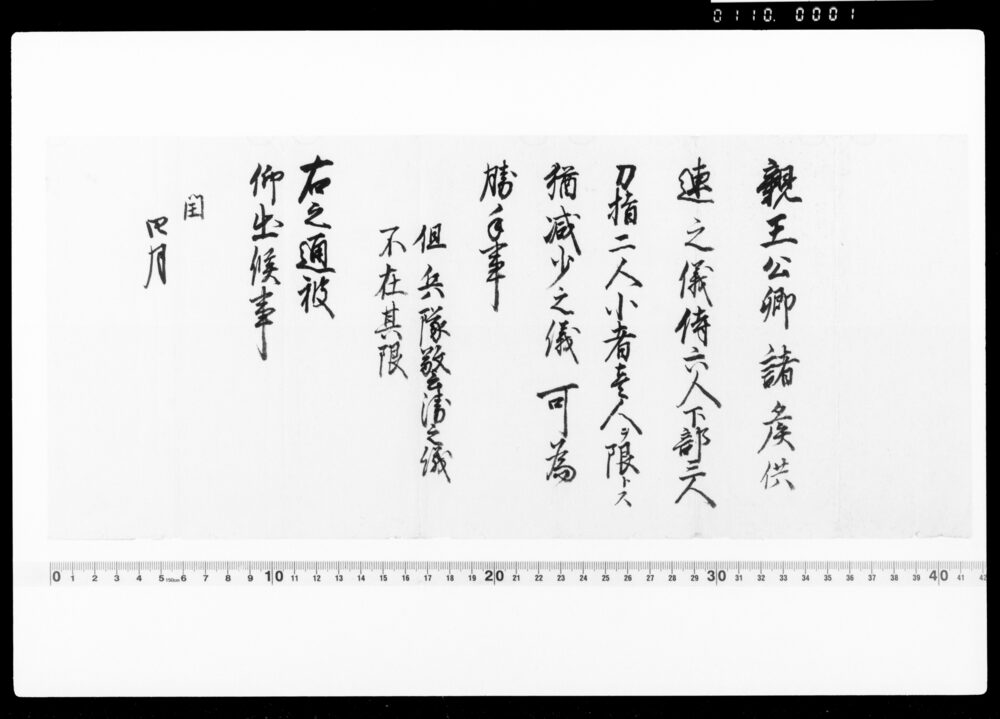 0110. 0001
親王公卿諸侯供
連之儀侍六人下部三人
刀指二人小者壱人ヲ限トス
猶減少之儀可為
勝手事
但兵隊警衛之儀
不在其限
右之通被
仰出候事
閏
四月
0 1 2 3 4 5 150cm 6 7 8 9 10 11 12 13 14 15 16 17 18 19 20 21 22 23 24 25 26 27 28 29 30 31 32 33 34 35 36 37 38 39 40 41 42